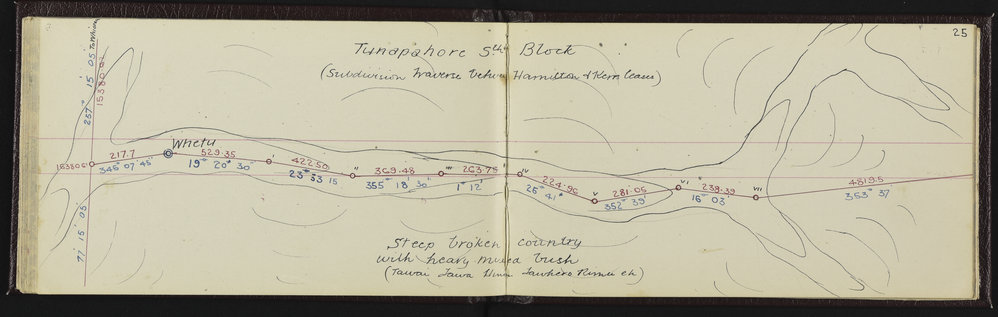 25
Tunapahore Sth Block
(Subdivision traverse between Hamilton & Kerr leases)
257° 15' 05" to Whiona
15380.62
Whetu
217.7
345° 07' 45"
529.35
19° 20' 30"
I
422.50
23° 33' 15
II
369.48
355° 18' 30"
III
263.75
1° 12'
IV
224.96
25° 41"
V
281.05
352° 39'
VI
239.39
16° 03'
VII
4819.5
353° 37
77° 15' 05"
Steep broken country
with heavy mixed bush
(Tawai Tawa Hinau Tawhero Rimu etc)